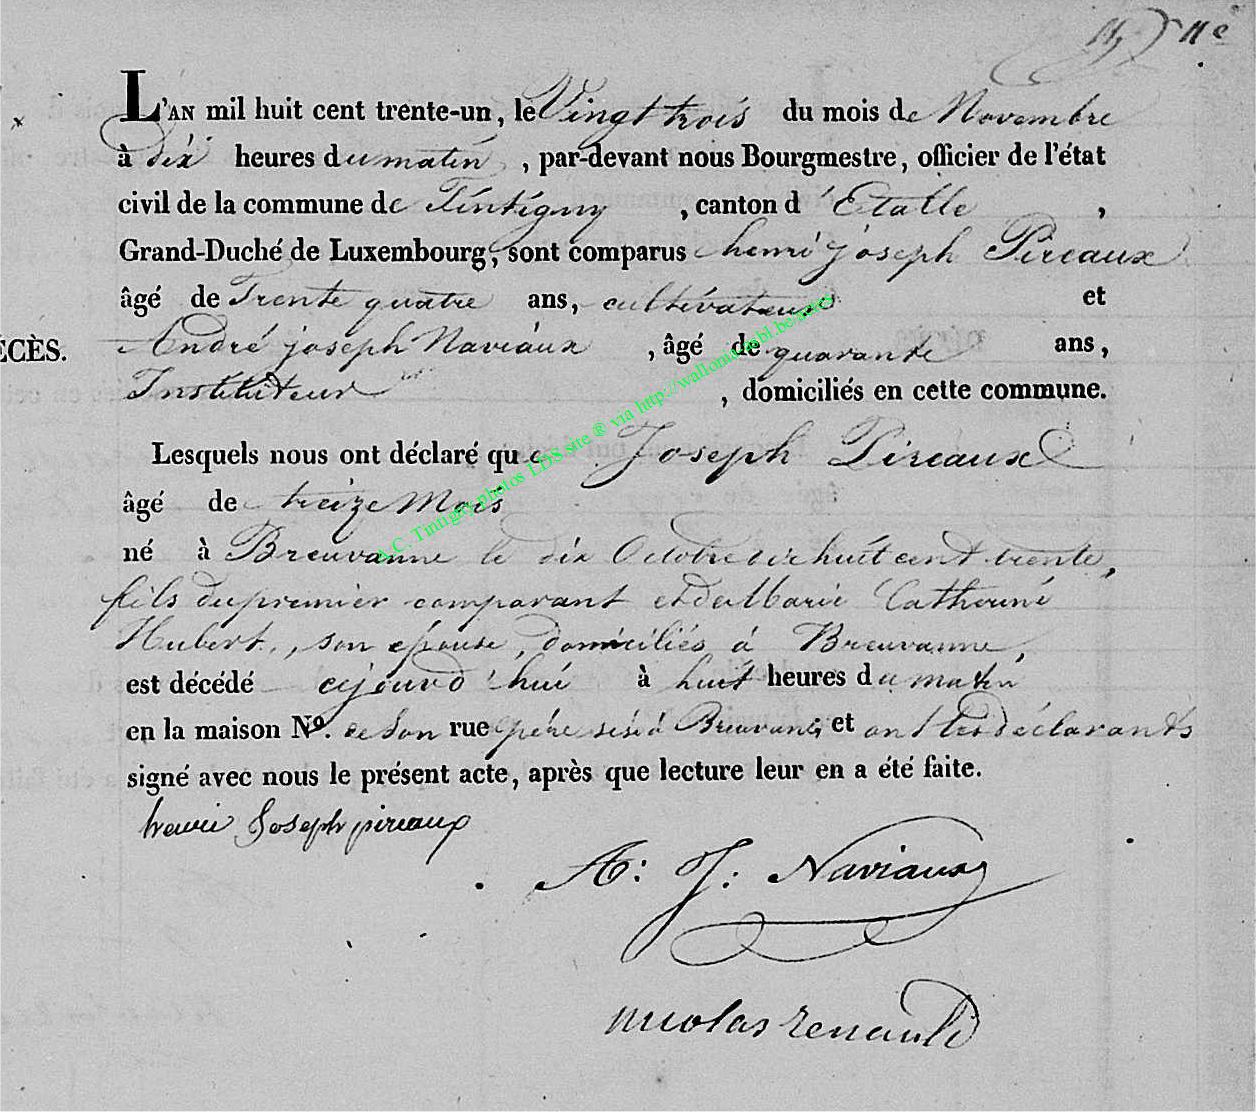 11e
L'AN mil huit cent trente-un, le Vingt trois du mois de Novembre
à dix heures du matin, par-devant nous Bourgmestre, officier de l'état
civil de la commune de Tintigny, canton d'Etalle,
Grand-Duché de Luxembourg, sont comparus henri joseph Pireaux
âgé de Trente quatre ans, cultivateur et
ÉCÈS. André joseph Naviaux, âgé de quarante ans,
Instituteur, domiciliés en cette commune.
Lesquels nous ont déclaré que Joseph Pireaux
âgé de treize Mois
né à Breuvanne le dix Octobre dix huit cent trente,
fils du premier comparant et de Marie Catherine
Hubert, son épouse, domiciliés à Breuvanne,
est décédé cejourd'hui à huit heures du matin
en la maison No. de Son rue père sise à Breuvanne et ont les déclarants
signé avec nous le présent acte, après que lecture leur en a été faite.
henri Joseph pireaux
A: J: Naviaux
nicolas renauld
A.C. Tintigny photos LDS site ® via http://wallonia.asbl.be/actes